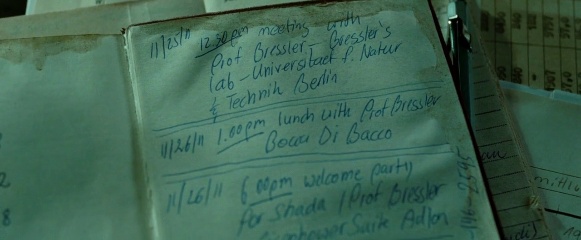 11/25/11 12.30pm meeting with
Prof Bressler - Bressler's
lab - Universitaet f. Natur
& Technik Berlin
11/26/11 1.00pm lunch with Prof Bressler
Bocca Di Bacco
11/26/11 6.00pm welcome party
for Shada / Prof Bressler
Eisenhower Suite Adlon